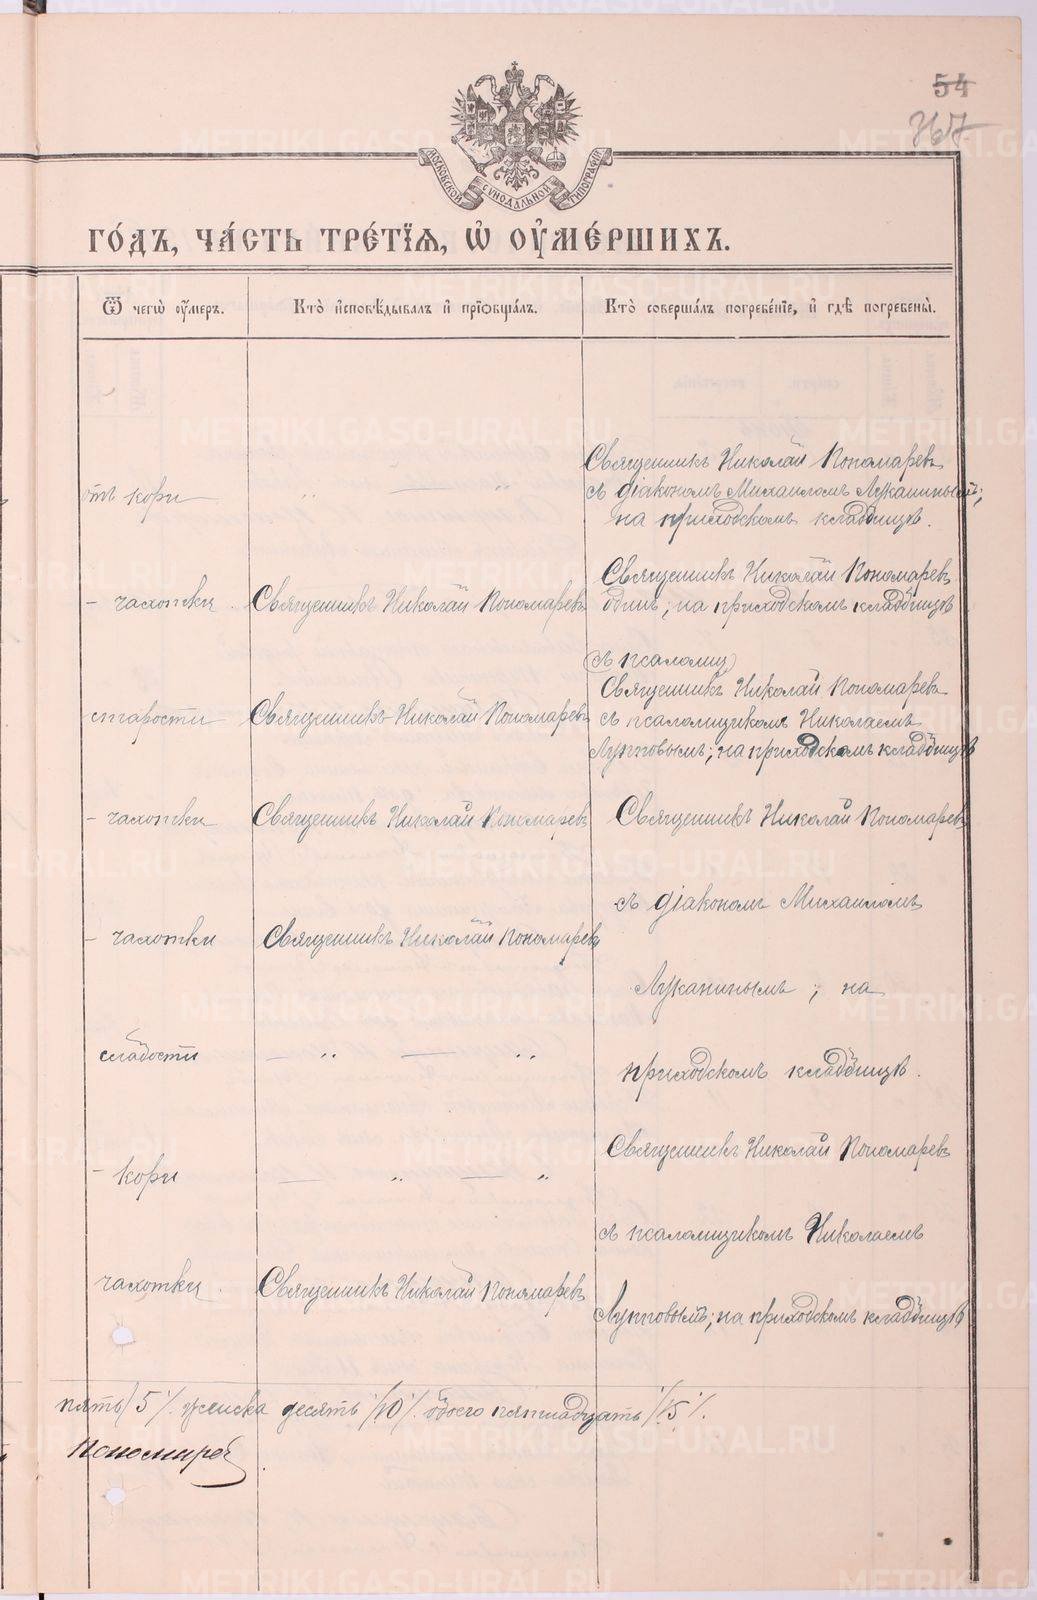 54
367
МОСКОВСКОЙ СѴНОДАЛЬНОЙ ТИПОГРАФІИ
ГО́ДЪ, ЧА́СТЬ ТРЕ́ТЇѦ, Ѡ҆ ОУ҆МЕ́РШИХЪ.
Ѿ чегѡ̀ оу҆́меръ.
Кто̀ и҆сповѣ́дывалъ и҆ прїѡбща́лъ.
Кто̀ соверша́лъ погребе́нїе, и҆ гдѣ̀ погребены̀.
отъ кори
„ — „
Священникъ Николай Пономаревъ
съ діакономъ Михаиломъ Луканинымъ;
на приходскомъ кладбищѣ.
– чахотки
Священникъ Николай Пономаревъ
Священникъ Николай Пономаревъ
одинъ; на приходскомъ кладбищѣ
(съ псаломщ)
старости
Священникъ Николай Пономаревъ
Священникъ Николай Пономаревъ
съ псаломщикомъ Николаемъ
Лупповымъ; на приходскомъ кладбищѣ
– чахотки
Священникъ Николай Пономаревъ
Священникъ Николай Пономаревъ
съ діакономъ Михаиломъ
– чахотки
Священникъ Николай Пономаревъ
Луканинымъ; на
слабости
— „ — „
приходскомъ кладбищѣ.
– кори
— „ — „
Священникъ Николай Пономаревъ
съ псаломщикомъ Николаемъ
чахотки
Священникъ Николай Пономаревъ
Лупповымъ; на приходскомъ кладбищѣ
пять /5/. женска десять /10/. обоего пятнадцать /15/.
Пономарев
METRIKI.GASO-URAL.RU